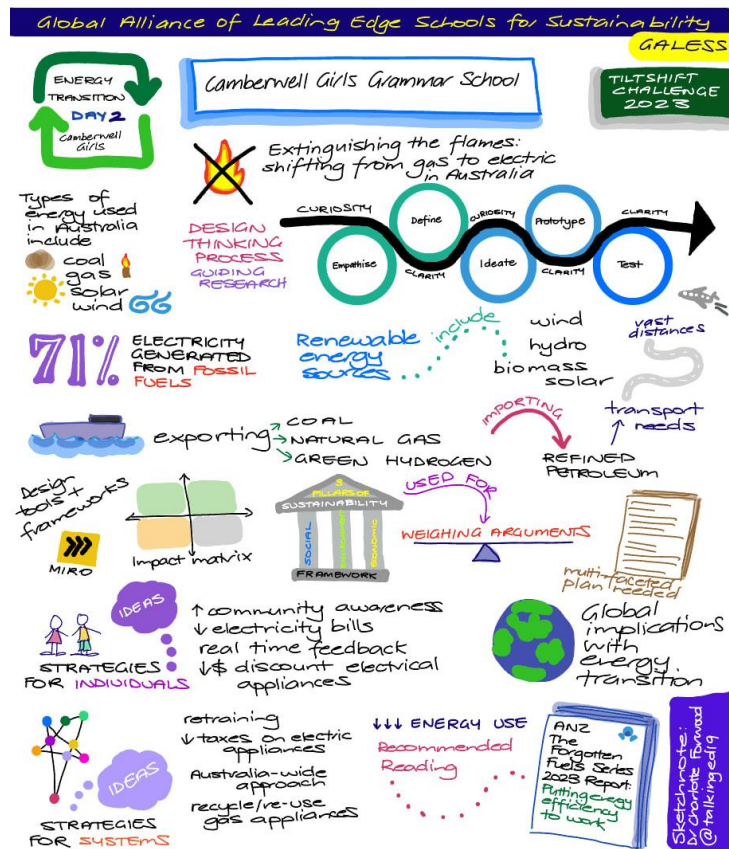 Global Alliance of Leading Edge Schools for Sustainability
GALESS
ENERGY
TRANSITION
DAY 2
Camberwell
Girls
Camberwell Girls Grammar School
TILTSHIFT
CHALLENGE
2023
Extinguishing the flames:
shifting from gas to electric
in Australia
Types of
energy used
in Australia
include
coal
gas
solar
wind
DESIGN
THINKING
PROCESS
GUIDING
RESEARCH
CURIOSITY
Empathise
Define
CLARITY
CURIOSITY
Ideate
Prototype
CLARITY
CLARITY
Test
71%
ELECTRICITY
GENERATED
FROM FOSSIL
FUELS
Renewable
energy
sources
include
wind
hydro
biomass
solar
vast
distances
transport
needs
exporting
COAL
NATURAL GAS
GREEN HYDROGEN
IMPORTING
REFINED
PETROLEUM
Design
tools +
frameworks
MIRO
Impact matrix
3
PILLARS OF
SUSTAINABILITY
SOCIAL
ENVIRONMENT
ECONOMIC
FRAMEWORK
USED FOR
WEIGHING ARGUMENTS
multi-faceted
plan needed
IDEAS
STRATEGIES
FOR INDIVIDUALS
↑ community awareness
↓ electricity bills
real time feedback
↓$ discount electrical
appliances
Global
implications
with
energy
transition
IDEAS
STRATEGIES
FOR SYSTEMS
retraining
↓ taxes on electric
appliances
Australia-wide
approach
recycle/re-use
gas appliances
↓↓↓ ENERGY USE
Recommended
Reading
ANZ
The
Forgotten
Fuels Series
2023 Report:
Putting energy
efficiency
to work
Sketchnote:
Dr Charlotte Forwood
@talkinged19